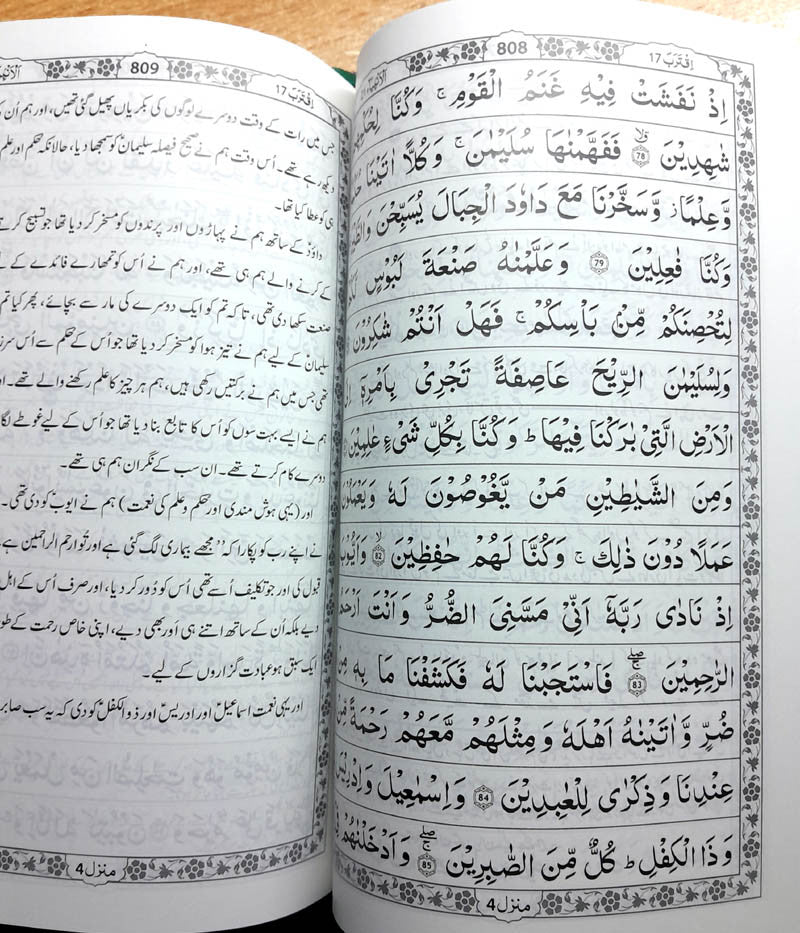 اِقْتَرَبَ 17
808
اِذْ نَفَشَتْ فِيْهِ غَنَمُ الْقَوْمِ ۚ وَكُنَّا
شٰهِدِيْنَ ۙ۷۸ فَفَهَّمْنٰهَا سُلَيْمٰنَ ۚ وَكُلًّا اٰتَيْنَا
وَّعِلْمًا ۫ وَّسَخَّرْنَا مَعَ دَاوٗدَ الْجِبَالَ يُسَبِّحْنَ
وَكُنَّا فٰعِلِيْنَ ۷۹ وَعَلَّمْنٰهُ صَنْعَةَ لَبُوْسٍ
لِتُحْصِنَكُمْ مِّنْۢ بَاْسِكُمْ ۚ فَهَلْ اَنْتُمْ شٰكِرُوْنَ
وَلِسُلَيْمٰنَ الرِّيْحَ عَاصِفَةً تَجْرِيْ بِاَمْرِهٖٓ
الْاَرْضِ الَّتِيْ بٰرَكْنَا فِيْهَا ؕ وَكُنَّا بِكُلِّ شَيْءٍ عٰلِمِيْنَ
وَمِنَ الشَّيٰطِيْنِ مَنْ يَّغُوْصُوْنَ لَهٗ وَيَعْمَلُوْنَ
عَمَلًا دُوْنَ ذٰلِكَ ۚ وَكُنَّا لَهُمْ حٰفِظِيْنَ ۙ۸۲
اِذْ نَادٰى رَبَّهٗٓ اَنِّيْ مَسَّنِيَ الضُّرُّ وَاَنْتَ
الرّٰحِمِيْنَ ۚۖ۸۳ فَاسْتَجَبْنَا لَهٗ فَكَشَفْنَا مَا بِهٖ مِنْ
ضُرٍّ وَّاٰتَيْنٰهُ اَهْلَهٗ وَمِثْلَهُمْ مَّعَهُمْ رَحْمَةً
عِنْدِنَا وَذِكْرٰى لِلْعٰبِدِيْنَ ۸۴ وَاِسْمٰعِيْلَ وَاِدْرِيْسَ
وَذَا الْكِفْلِ ؕ كُلٌّ مِّنَ الصّٰبِرِيْنَ ۚۖ۸۵ وَاَدْخَلْنٰهُمْ
منزل 4
اِقْتَرَبَ 17
809
جس میں رات کے وقت دوسرے لوگوں کی بکریاں پھیل گئی تھیں، اور ہم
دیکھ رہے تھے۔ اُس وقت ہم نے صحیح فیصلہ سلیمانؑ کو سمجھا دیا، حالانکہ حکم اور علم
ہی کو عطا کیا تھا۔
داوٗدؑ کے ساتھ ہم نے پہاڑوں اور پرندوں کو مسخر کر دیا تھا جو تسبیح کرتے
کے کرنے والے ہم ہی تھے، اور ہم نے اُس کو تمھارے فائدے کے
صنعت سکھا دی تھی، تاکہ تم کو ایک دوسرے کی مار سے بچائے، پھر کیا تم
سلیمانؑ کے لیے ہم نے تیز ہوا کو مسخر کر دیا تھا جو اُس کے حکم سے اُس
تھی جس میں ہم نے برکتیں رکھی ہیں، ہم ہر چیز کا علم رکھنے والے تھے۔
ہم نے ایسے بہت سوں کو اُس کا تابع بنا دیا تھا جو اُس کے لیے غوطے
دوسرے کام کرتے تھے۔ ان سب کے نگران ہم ہی تھے۔
اور (یہی ہوش مندی اور حکم و علم کی نعمت) ہم نے ایوبؑ کو دی تھی۔
نے اپنے رب کو پکارا کہ ”مجھے بیماری لگ گئی ہے اور تُو ارحم الراحمین ہے
قبول کی اور جو تکلیف اُسے تھی اُس کو دُور کر دیا، اور صرف اُس کے اہل
دیے بلکہ اُن کے ساتھ اتنے ہی اَور بھی دیے، اپنی خاص رحمت کے
ایک سبق ہو عبادت گزاروں کے لیے۔
اور یہی نعمت اسماعیلؑ اور ادریسؑ اور ذوالکفلؑ کو دی کہ یہ سب
منزل 4